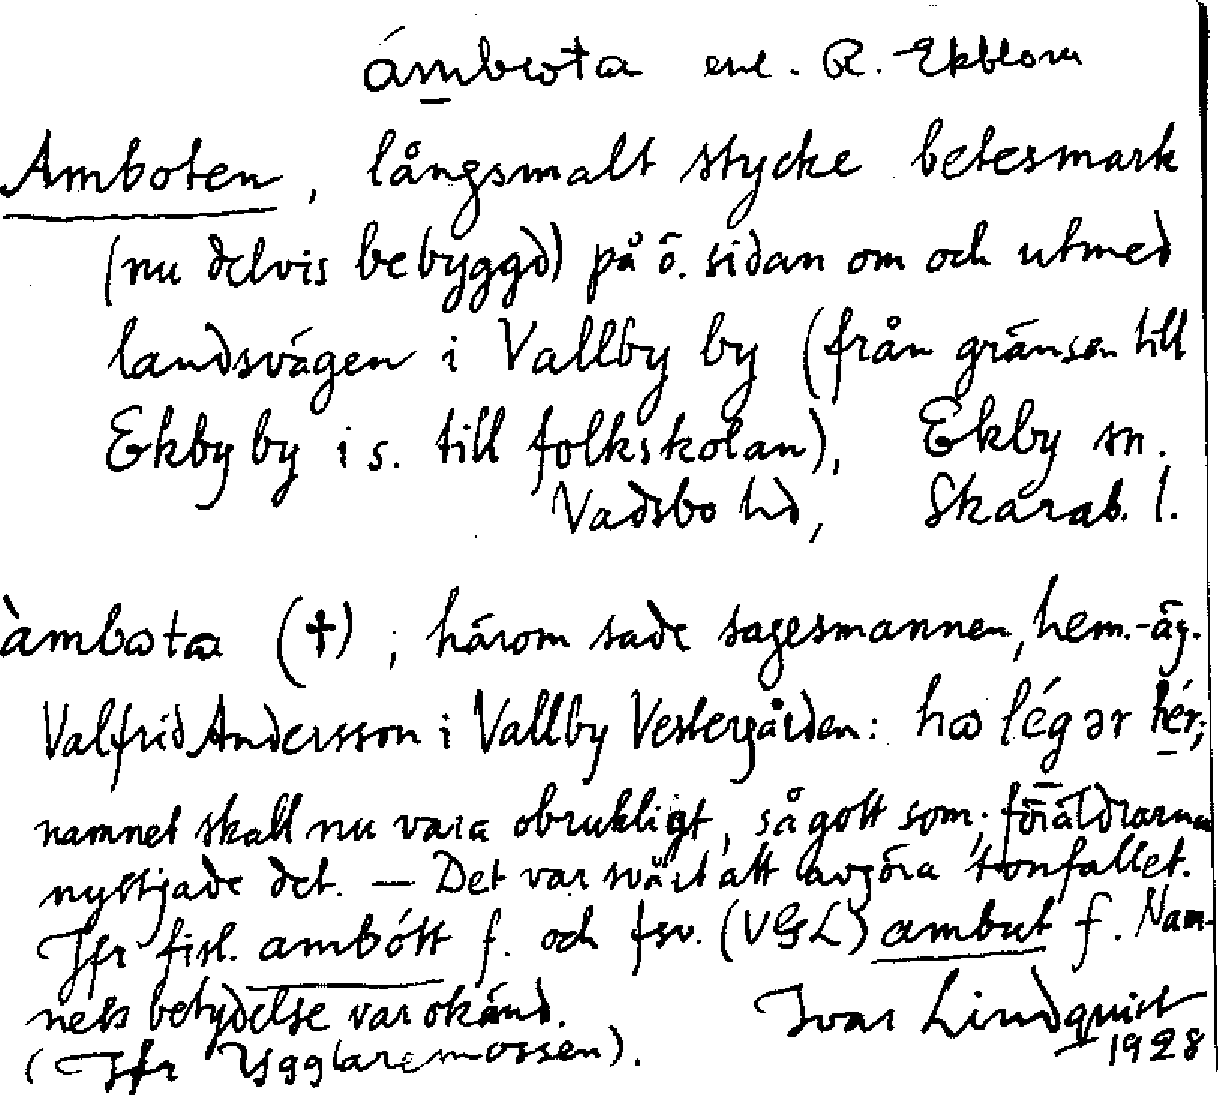 ámbωta enl. R. Ekblom
Amboten, långsmalt stycke betesmark
(nu delvis bebyggd) på ö. sidan om och utmed
landsvägen i Vallby by (från gränsen till
Ekby by i s. till folkskolan), Ekby sn.
Vadsbo hd, Skarab. l.
àmbωta (†); härom sade sagesmannen, hem.-äg.
Valfrid Andersson i Vallby Vestergården: hω légər hér;
namnet skall nu vara obrukligt, sågott som; föräldrarna
nyttjade det. — Det var svårt att avgöra tonfallet.
Jfr fisl. ambótt f. och fsv. (VGL) ambut f. Nam-
nets betydelse var okänd. Ivar Lindquist
(Jfr Ygglaremossen). 1928